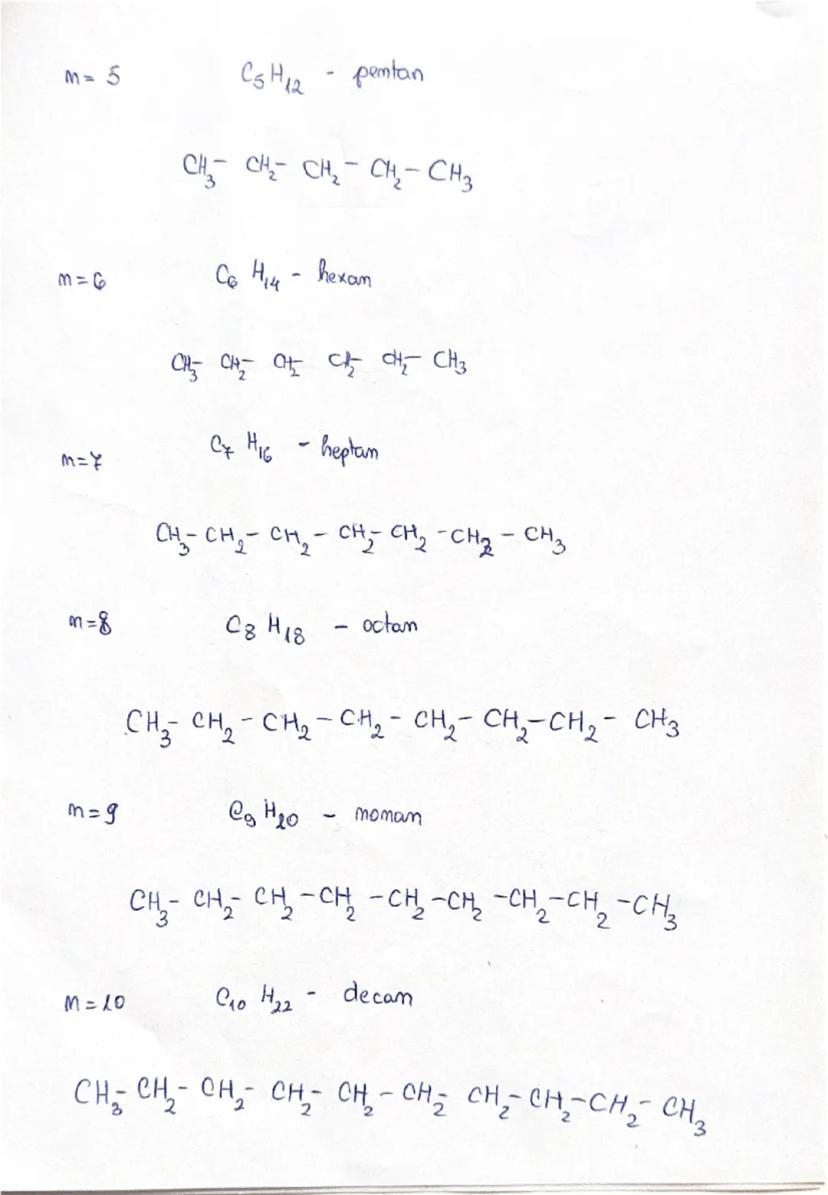 n = 5 C₅H₁₂ - pentan
CH₃- CH₂- CH₂- CH₂- CH₃
n = 6 C₆ H₁₄ - hexan
CH₃- CH₂- CH₂- CH₂- CH₂- CH₃
n = 7 C₇ H₁₆ - heptan
CH₃- CH₂- CH₂- CH₂- CH₂ -CH₂ - CH₃
n = 8 C₈ H₁₈ - octan
CH₃- CH₂ - CH₂ - CH₂ - CH₂- CH₂-CH₂ - CH₃
n = 9 C₉ H₂₀ - nonan
CH₃- CH₂- CH₂ -CH₂ -CH₂ -CH₂ -CH₂-CH₂ -CH₃
n = 10 C₁₀ H₂₂ - decan
CH₃- CH₂- CH₂- CH₂- CH₂ - CH₂- CH₂- CH₂-CH₂- CH₃